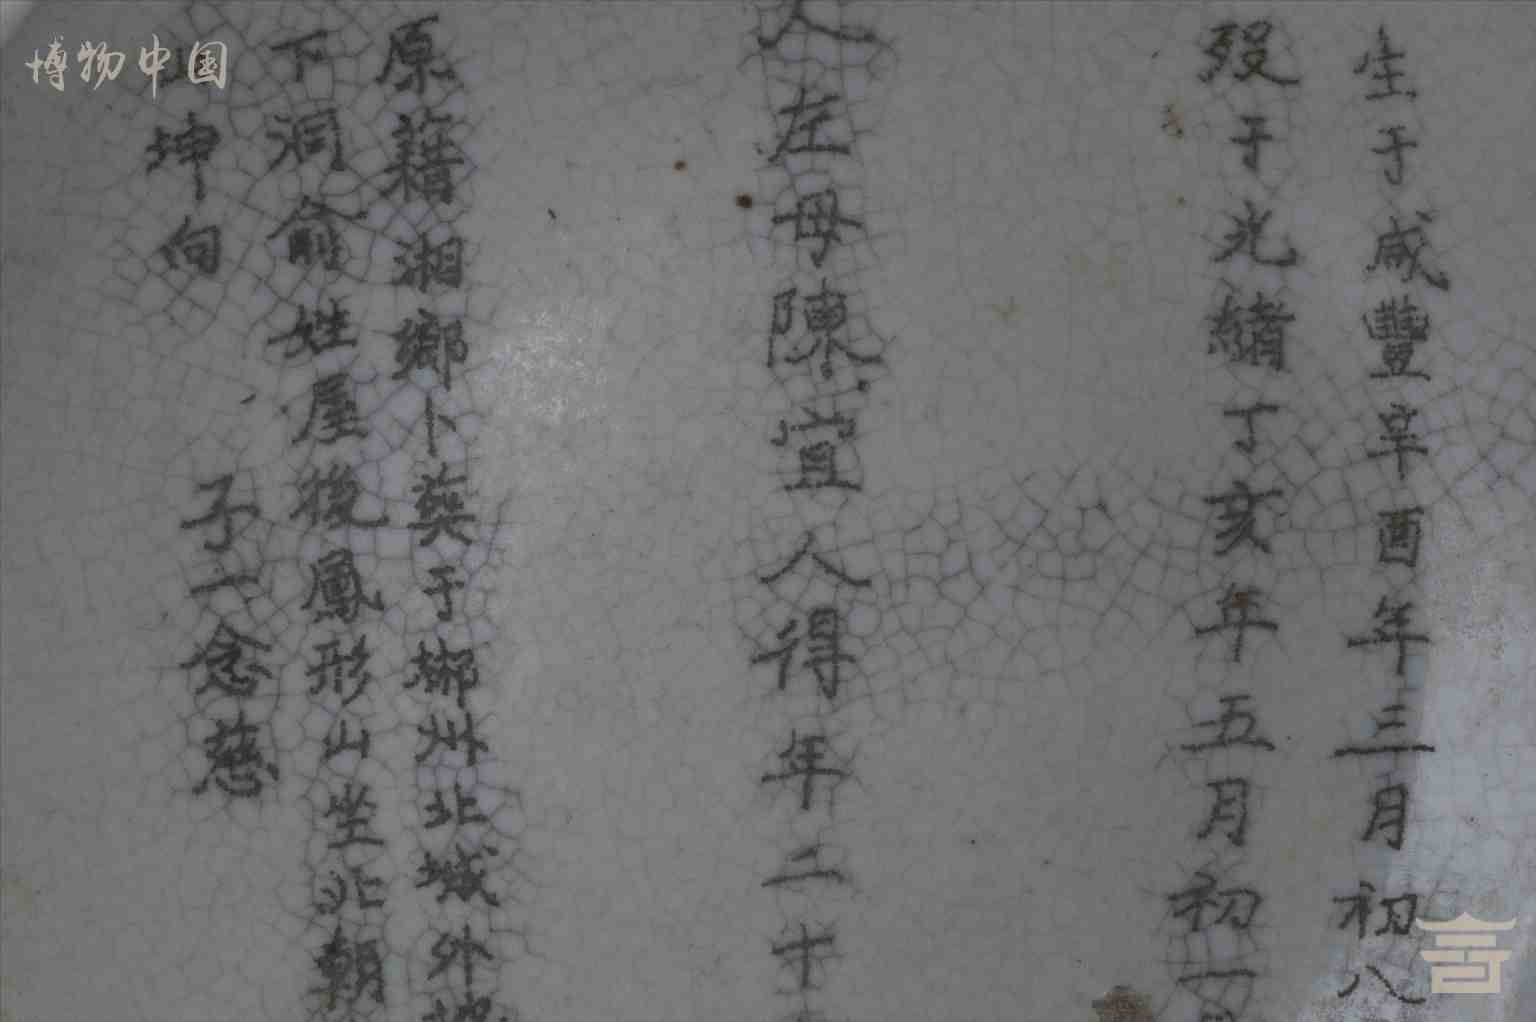 生于咸豐辛酉年三月初八
歿于光緒丁亥年五月初一
人左母陳宜人得年二十
原籍湘鄉卜葬于郴州北城外
下洞俞姓屋後鳳形山坐北朝
坤向
子一念慈
博物中国